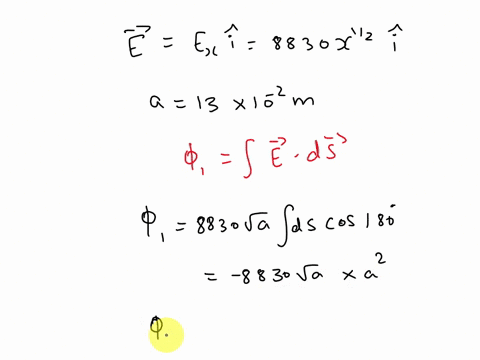 E⃗ = Eₓ î = 8830 x^1/2 î
a = 13 × 10^-2 m
ϕ₁ = ∫ E⃗ · ds⃗
ϕ₁ = 8830 √a ∫ ds cos 180°
= -8830 √a × a²
ϕ.